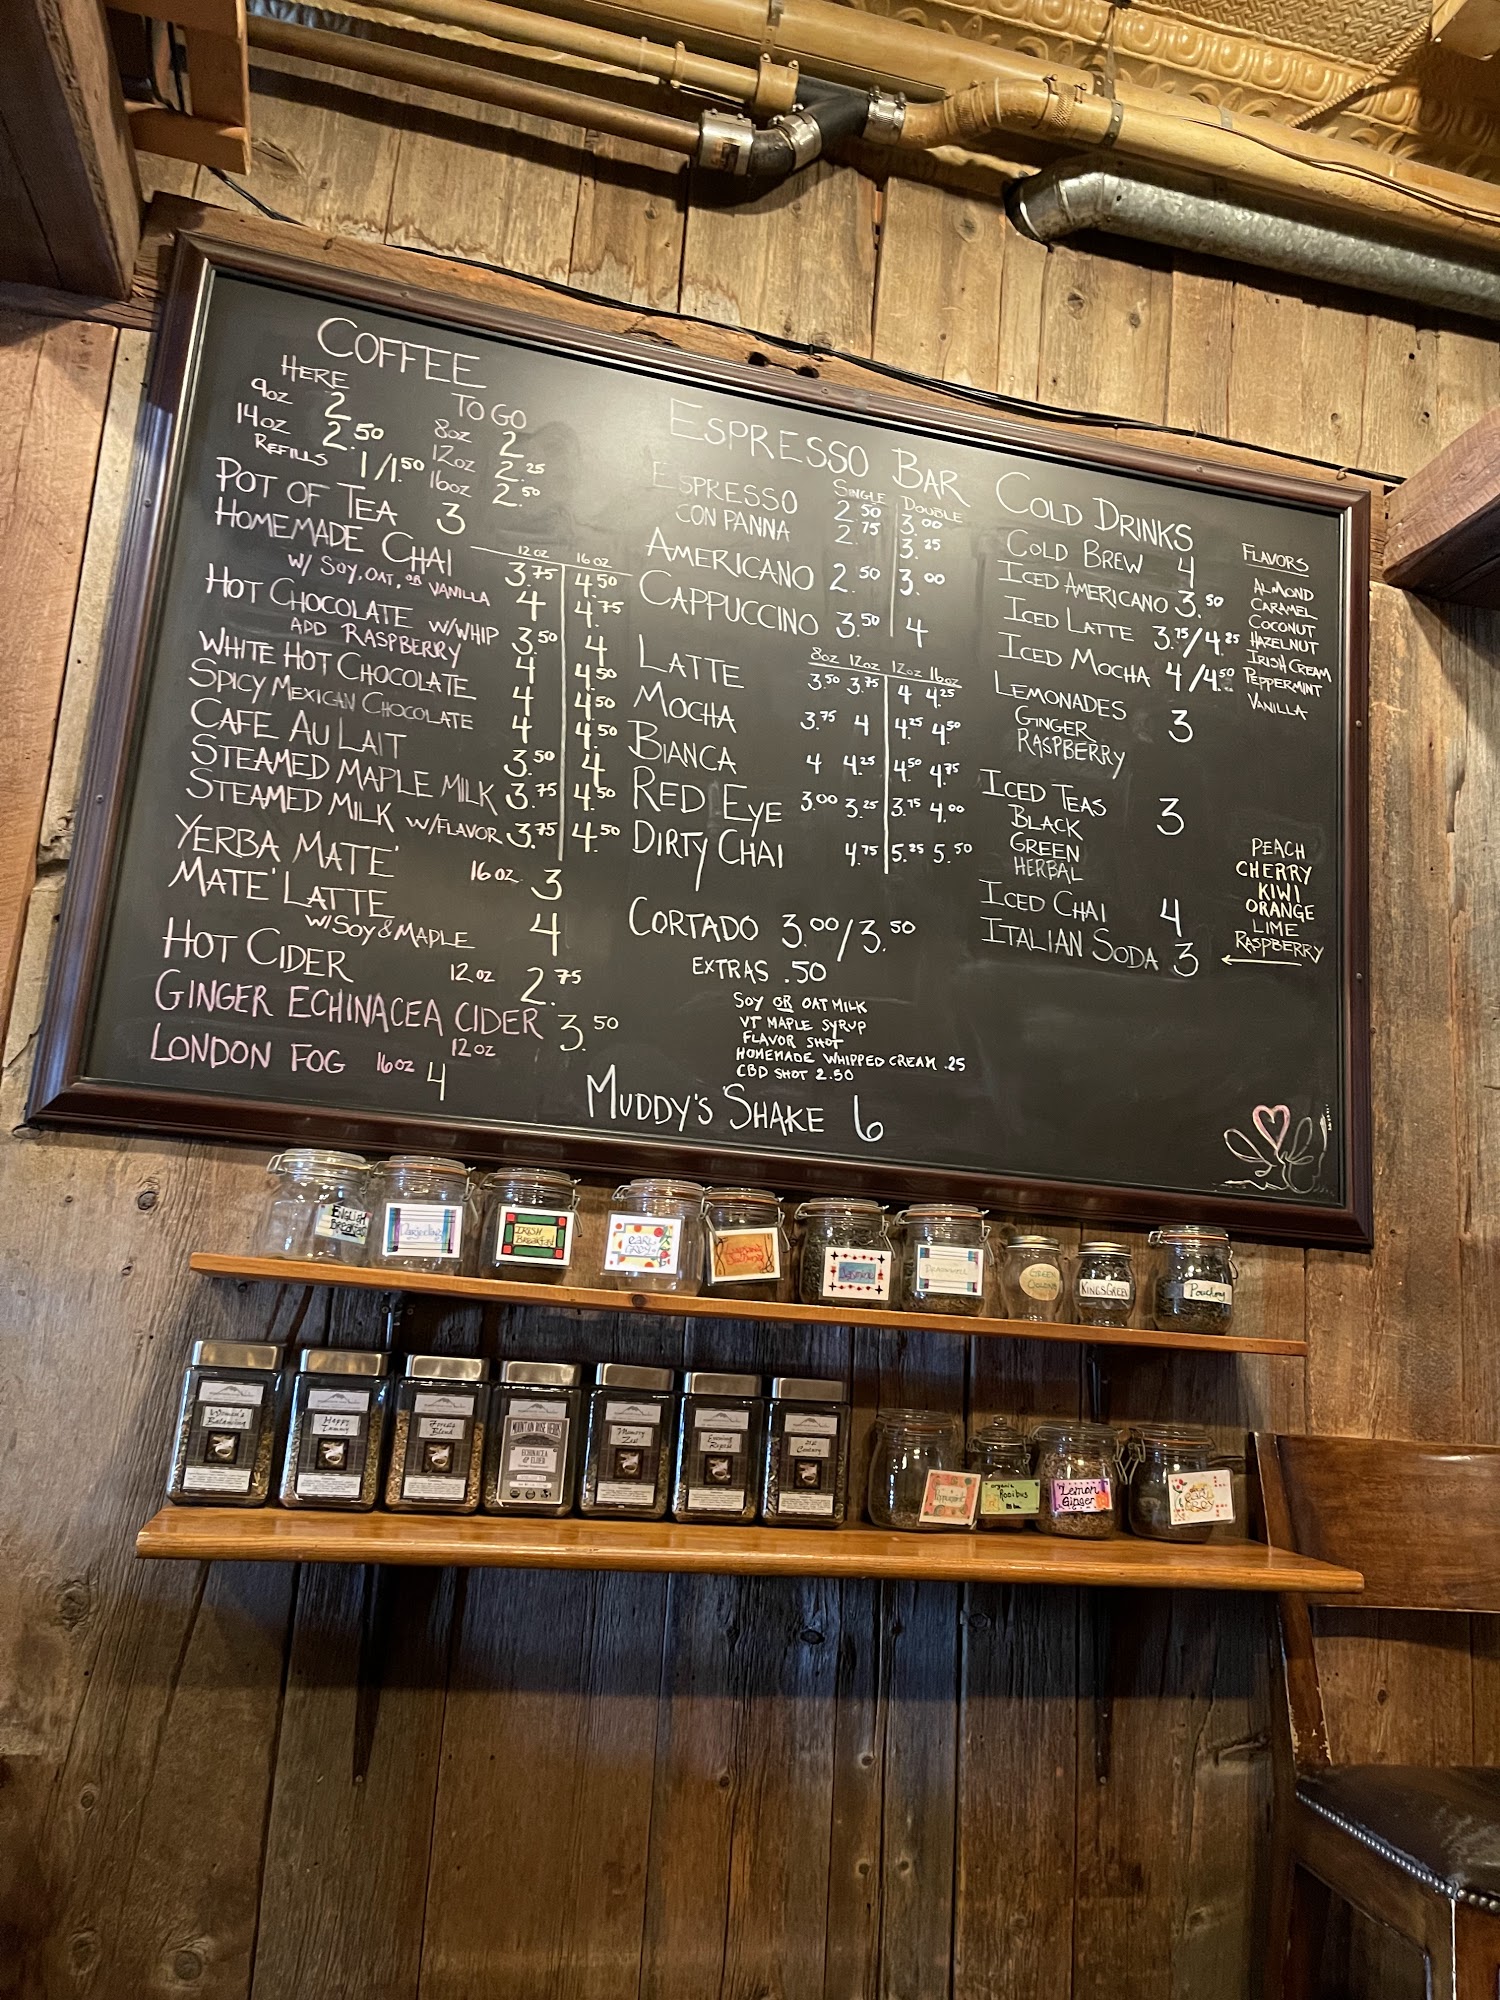 COFFEE
HERE
9oz 2
14oz 2.50
REFILLS 1/1.50
TO GO
8oz 2
12oz 2.25
16oz 2.50
POT OF TEA 3
12 oz 16 oz
HOMEMADE CHAI 3.75 4.50
W/ SOY, OAT, OR VANILLA 4 4.75
HOT CHOCOLATE W/WHIP 3.50 4
ADD RASPBERRY 4 4.50
WHITE HOT CHOCOLATE 4 4.50
SPICY MEXICAN CHOCOLATE 4 4.50
CAFE AU LAIT 3.50 4
STEAMED MAPLE MILK 3.75 4.50
STEAMED MILK W/FLAVOR 3.75 4.50
YERBA MATE' 16 oz 3
MATE' LATTE 4
W/SOY & MAPLE
HOT CIDER 12 oz 2.75
GINGER ECHINACEA CIDER 3.50
12 oz
LONDON FOG 16 oz 4
ESPRESSO BAR
SINGLE DOUBLE
ESPRESSO 2.50 3.00
CON PANNA 2.75 3.25
AMERICANO 2.50 3.00
CAPPUCCINO 3.50 4
8oz 12oz 12oz 16oz
LATTE 3.50 3.75 4 4.25
MOCHA 3.75 4 4.25 4.50
BIANCA 4 4.25 4.50 4.75
RED EYE 3.00 3.25 3.75 4.00
DIRTY CHAI 4.75 5.25 5.50
CORTADO 3.00/3.50
EXTRAS .50
SOY OR OAT MILK
VT MAPLE SYRUP
FLAVOR SHOT
HOMEMADE WHIPPED CREAM .25
CBD SHOT 2.50
MUDDY'S SHAKE 6
COLD DRINKS
COLD BREW 4
ICED AMERICANO 3.50
ICED LATTE 3.75/4.25
ICED MOCHA 4/4.50
LEMONADES 3
GINGER
RASPBERRY
ICED TEAS 3
BLACK
GREEN
HERBAL
ICED CHAI 4
ITALIAN SODA 3
FLAVORS
ALMOND
CARAMEL
COCONUT
HAZELNUT
IRISH CREAM
PEPPERMINT
VANILLA
PEACH
CHERRY
KIWI
ORANGE
LIME
RASPBERRY
ENGLISH
BREAKFAST
Darjeeling
IRISH
BREAKFAST
EARL
GREY
Jasmine
KINGS GREEN
Pouchong
Women's
Balancing
Happy
Tummy
Forest
Blend
MOUNTAIN ROSE HERBS
ECHINACEA
& ELDER
Memory
Zest
Evening
Repose
21st
Century
Peppermint
organic
Rooibus
Lemon
Ginger